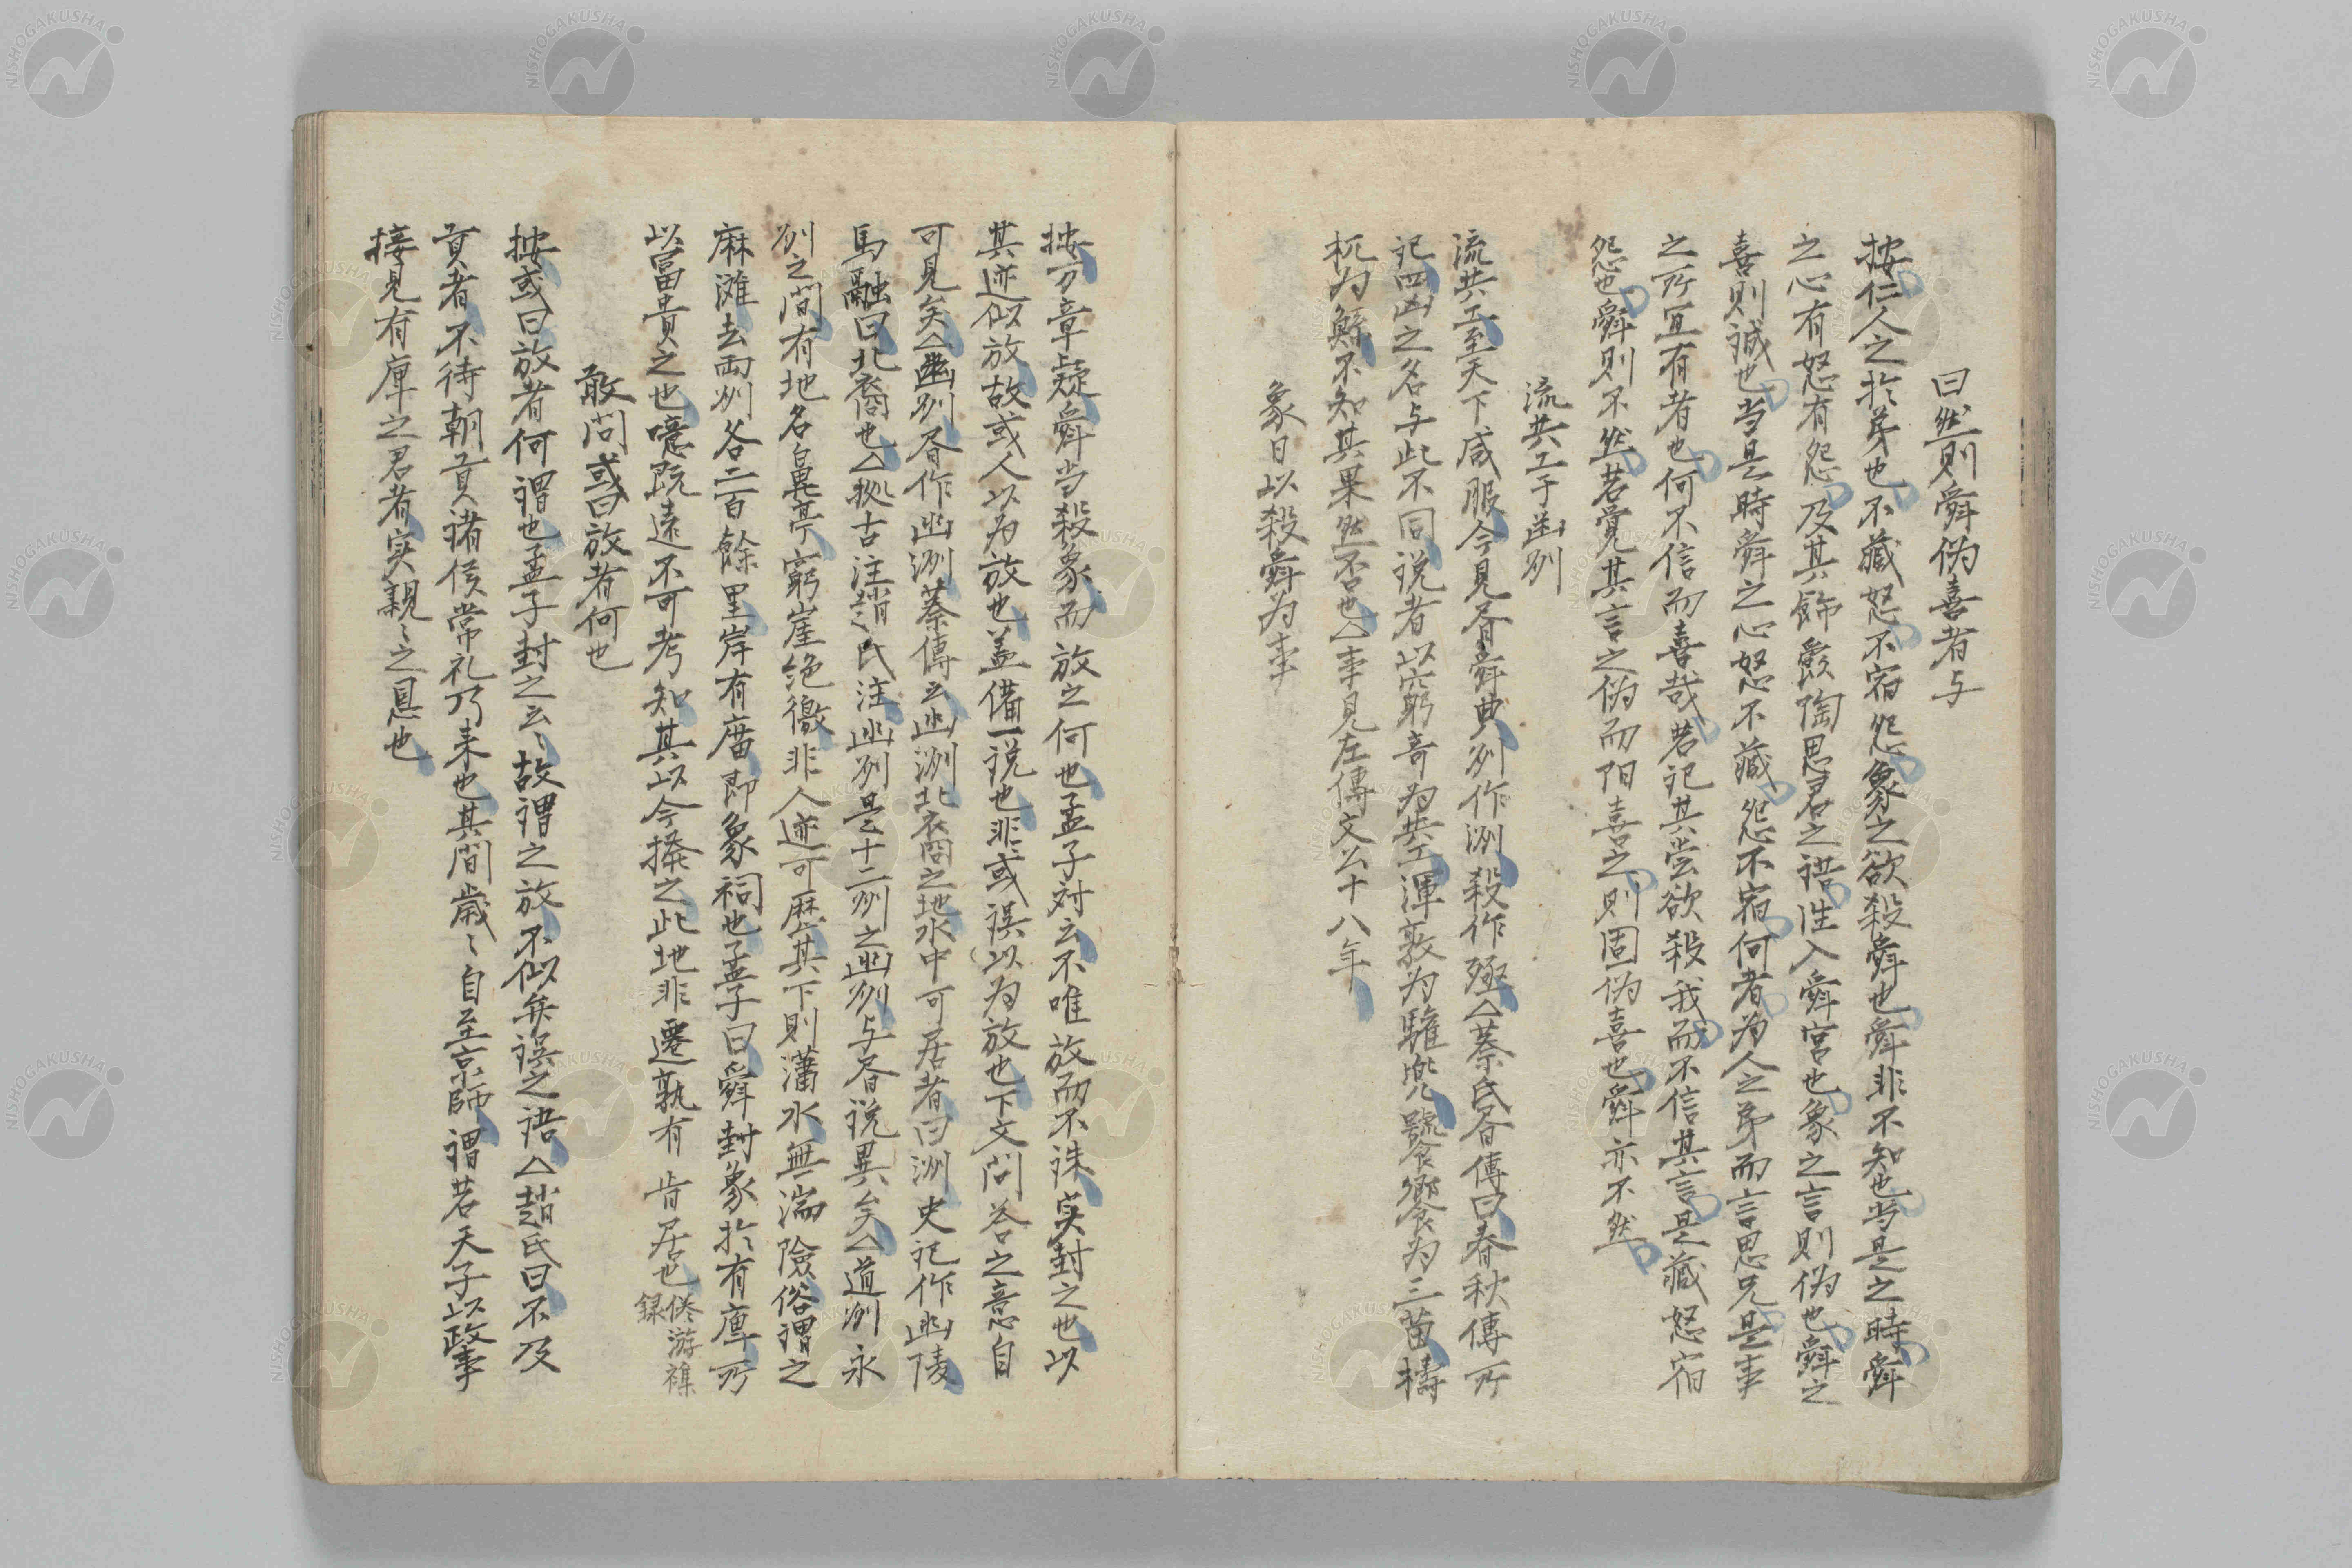 曰然則舜偽喜者与
按仁人之於弟也不藏怒不宿怨象之欲殺舜也舜非不知也当是之時舜
之心有怒有怨及其飾欝陶思君之語淮入舜宮也象之言則偽也舜之
喜則誠也当是時舜之心怒不藏怨不宿何者為人之弟而言思兄是事
之所宜有者也何不信而喜哉若記其尝欲殺我而不信其言是藏怒宿
怨也舜則不然若覚其言之偽而阳喜之則固偽喜也舜亦不然
流共工于幽列
流共工至天下咸服今見昚舜典列作洲殺作殛△蔡氏昚傳曰春秋傳所
記四凶之名与此不同説者以窮奇為共工渾敦為驩兜饕餮為三苗檮
杌为鯀不知其果然否也△事見左傳文公十八年
象日以殺舜为事
按万章疑舜当殺象而放之何也孟子对云不唯放而不誅实封之也以
其迹似放故或人以为放也盖備一説也非或誤以为放也下文問答之意自
可見矣△幽州昚作幽洲蔡傳云幽洲北裔之地水中可居者曰洲史記作幽陵
馬融曰北裔也△拠古注趙氏注幽列是十二州之幽列与昚説異矣△道州永
列之間有地名鼻亭窮崖绝徼非人迹可歷其下則瀟水無湍險俗謂之
麻滩去两州各二百餘里岸有庙即象祠也孟子曰舜封象於有庳所
以富貴之也噫既遠不可考知其以今揆之此地非遷孰有肯居也倦游襍
録
敢问或曰放者何也
按或曰放者何謂也孟子封之云〻故谓之放不似矣誤之语△趙氏曰不及
貢者不待朝貢诸侯常礼乃来也其間歲〻自至京師谓若天子以政事
接見有庳之君者实親〻之恩也